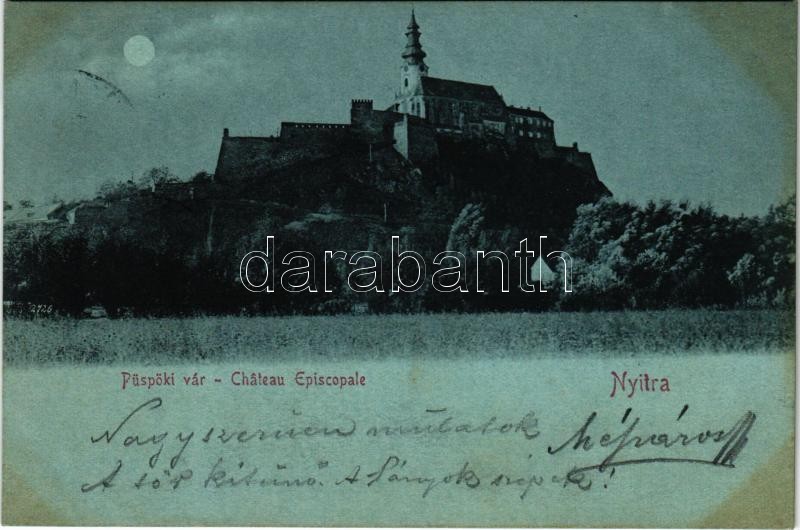 2426
darabanth
Püspöki vár - Château Episcopale Nyitra
Nagyszerüen mulatok
A sör kitünő. A Lányok szépek!